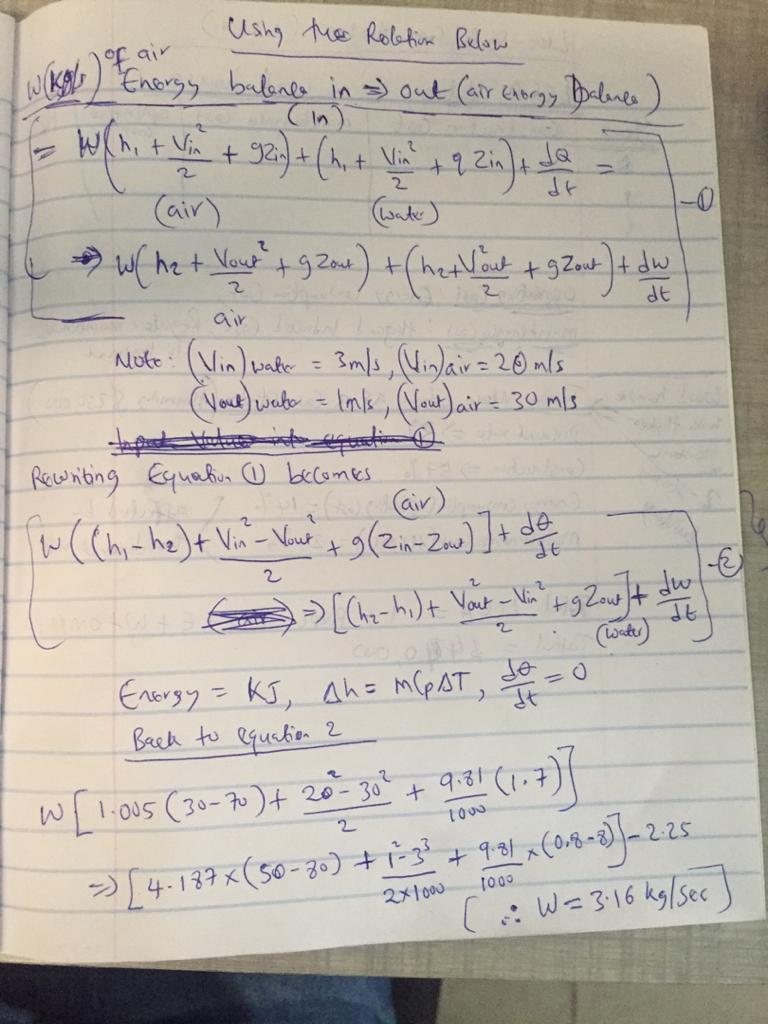 Using the Relation Below
W(kg/s) of air Energy balance in => out (air energy balance)
(in)
= W(h₁ + Vin²/2 + gZin) + (h₁ + Vin²/2 + gZin) + dQ/dt = —①
(air) (water)
=> W(h₂ + Vout²/2 + gZout) + (h₂ + Vout²/2 + gZout) + dw/dt
air
Note: (Vin)water = 3m/s, (Vin)air = 20 m/s
(Vout)water = 1m/s, (Vout)air = 30 m/s
Input Values into equation ①
Rewriting Equation ① becomes
(air)
[W((h₁-h₂) + Vin² - Vout²/2 + g(Zin-Zout)] + dθ/dt
=> [(h₂-h₁) + Vout² - Vin²/2 + gZout] + dw/dt —②
(water)
Energy = KJ, Δh = MCpΔT, dθ/dt = 0
Back to equation 2
W[1.005(30-70) + 20² - 30²/2 + 9.81/1000 (1.7)]
=> [4.187×(50-80) + 1²-3³/2×1000 + 9.81/1000 ×(0.8-8)] - 2.25
[∴ W = 3.16 kg/sec]